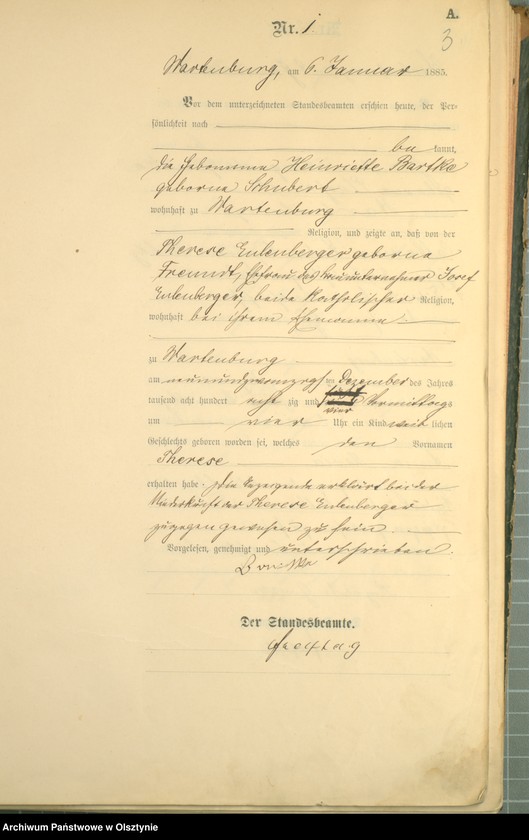 A.
3
Nr. 1
Wartenburg, am 6. Januar 1885.
Vor dem unterzeichneten Standesbeamten erschien heute, der Per-
sönlichkeit nach
be kannt,
die Hebamme Henriette Bartke
geborne Schubert
wohnhaft zu Wartenburg
Religion, und zeigte an, daß von der
Therese Eulenberger geborne
Freundt, Ehefrau des Bauunternehmer Josef
Eulenberger, beide katholischer Religion,
wohnhaft bei ihrem Ehemanne
zu Wartenburg
am neunundzwanzigsten Dezember des Jahres
tausend acht hundert acht zig und vier Vormittags
um vier Uhr ein Kind weib lichen
Geschlechts geboren worden sei, welches den Vornamen
Therese
erhalten habe. Die Anzeigende erklärt bei der
Niederkunft der Therese Eulenberger
zugegen gewesen zu sein.
Vorgelesen, genehmigt und unterschrieben.
Der Standesbeamte.
Archiwum Państwowe w Olsztynie